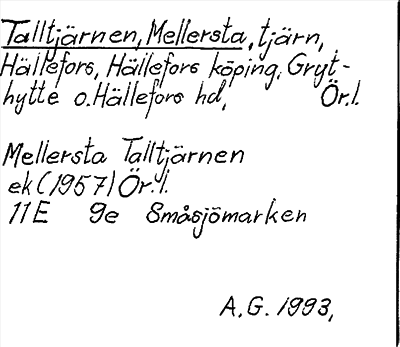 Talltjärnen, Mellersta, tjärn,
Hällefors, Hällefors köping, Gryt-
hytte o. Hällefors hd, Ör.l.
Mellersta Talltjärnen
ek (1957) Ör.l.
11E 9e Småsjömarken
A.G. 1993,